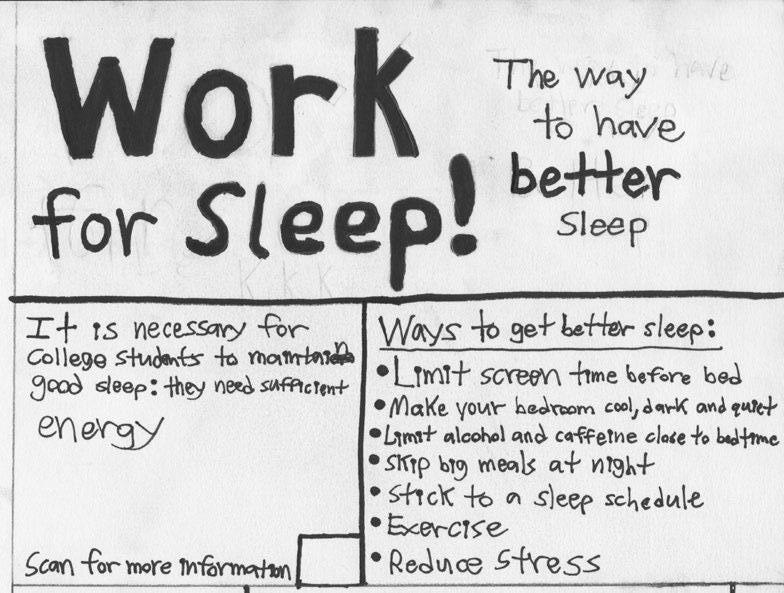 Work
for Sleep!
The way
to have
better
Sleep
It is necessary for
college students to maintain
good sleep: they need sufficient
energy
Scan for more information
Ways to get better sleep:
• Limit screen time before bed
• Make your bedroom cool, dark and quiet
• Limit alcohol and caffeine close to bedtime
• Skip big meals at night
• Stick to a sleep schedule
• Exercise
• Reduce stress